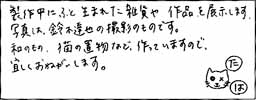 製作中にふと生まれた雑貨や作品を展示します。
写真は、鈴木達也の撮影のものです。
和のもの、猫の置物など、作っていますので、
宜しくおねがいします。
た
は